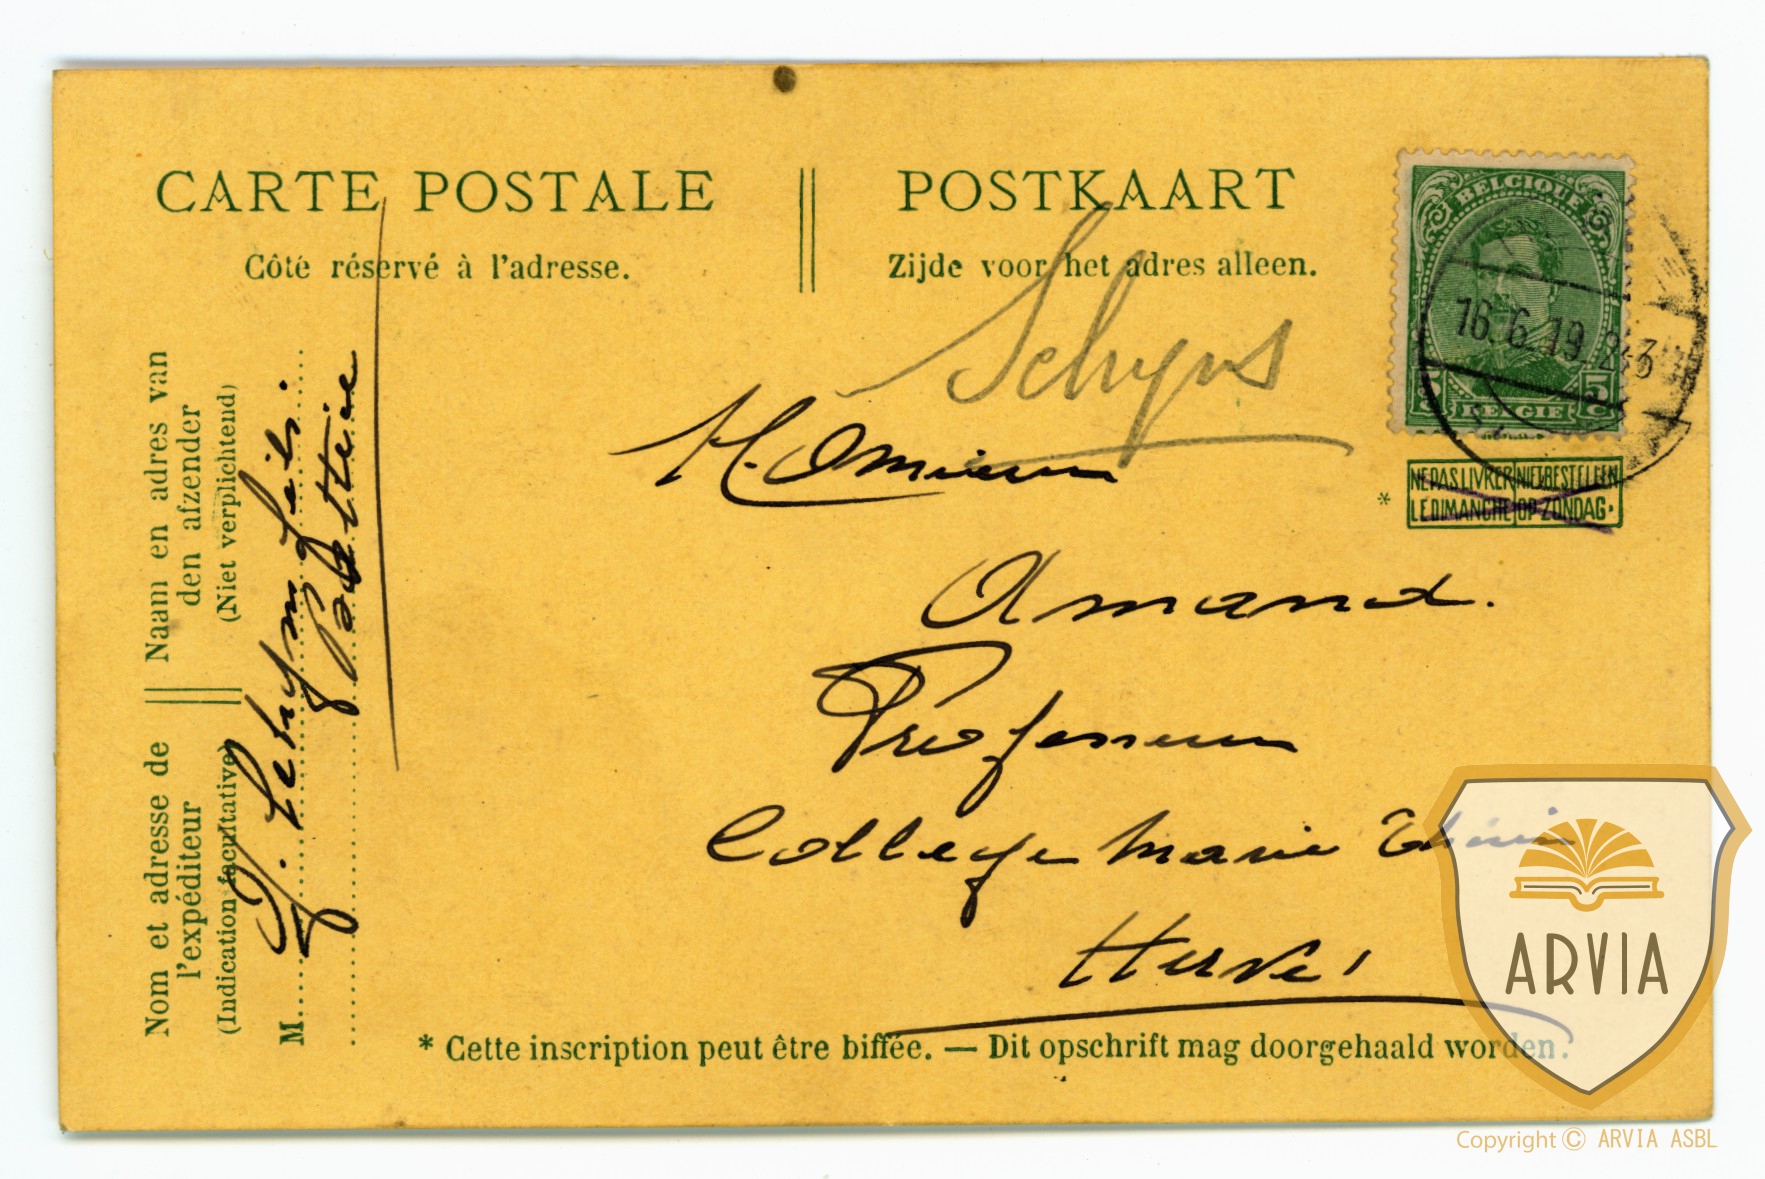 CARTE POSTALE
Côté réservé à l'adresse.
POSTKAART
Zijde voor het adres alleen.
BELGIQUE
16.6.19.
5 c
BELGIË
NE PAS LIVRER LE DIMANCHE
NIET BESTELLEN OP ZONDAG.
*
Schyns
Monsieur
Amand.
Professeur
College Marie Thérèse
Herve
Naam en adres van
den afzender
(Niet verplichtend)
Nom et adresse de
l'expéditeur
(Indication facultative)
M.
* Cette inscription peut être biffée. — Dit opschrift mag doorgehaald worden.
ARVIA
Copyright © ARVIA ASBL